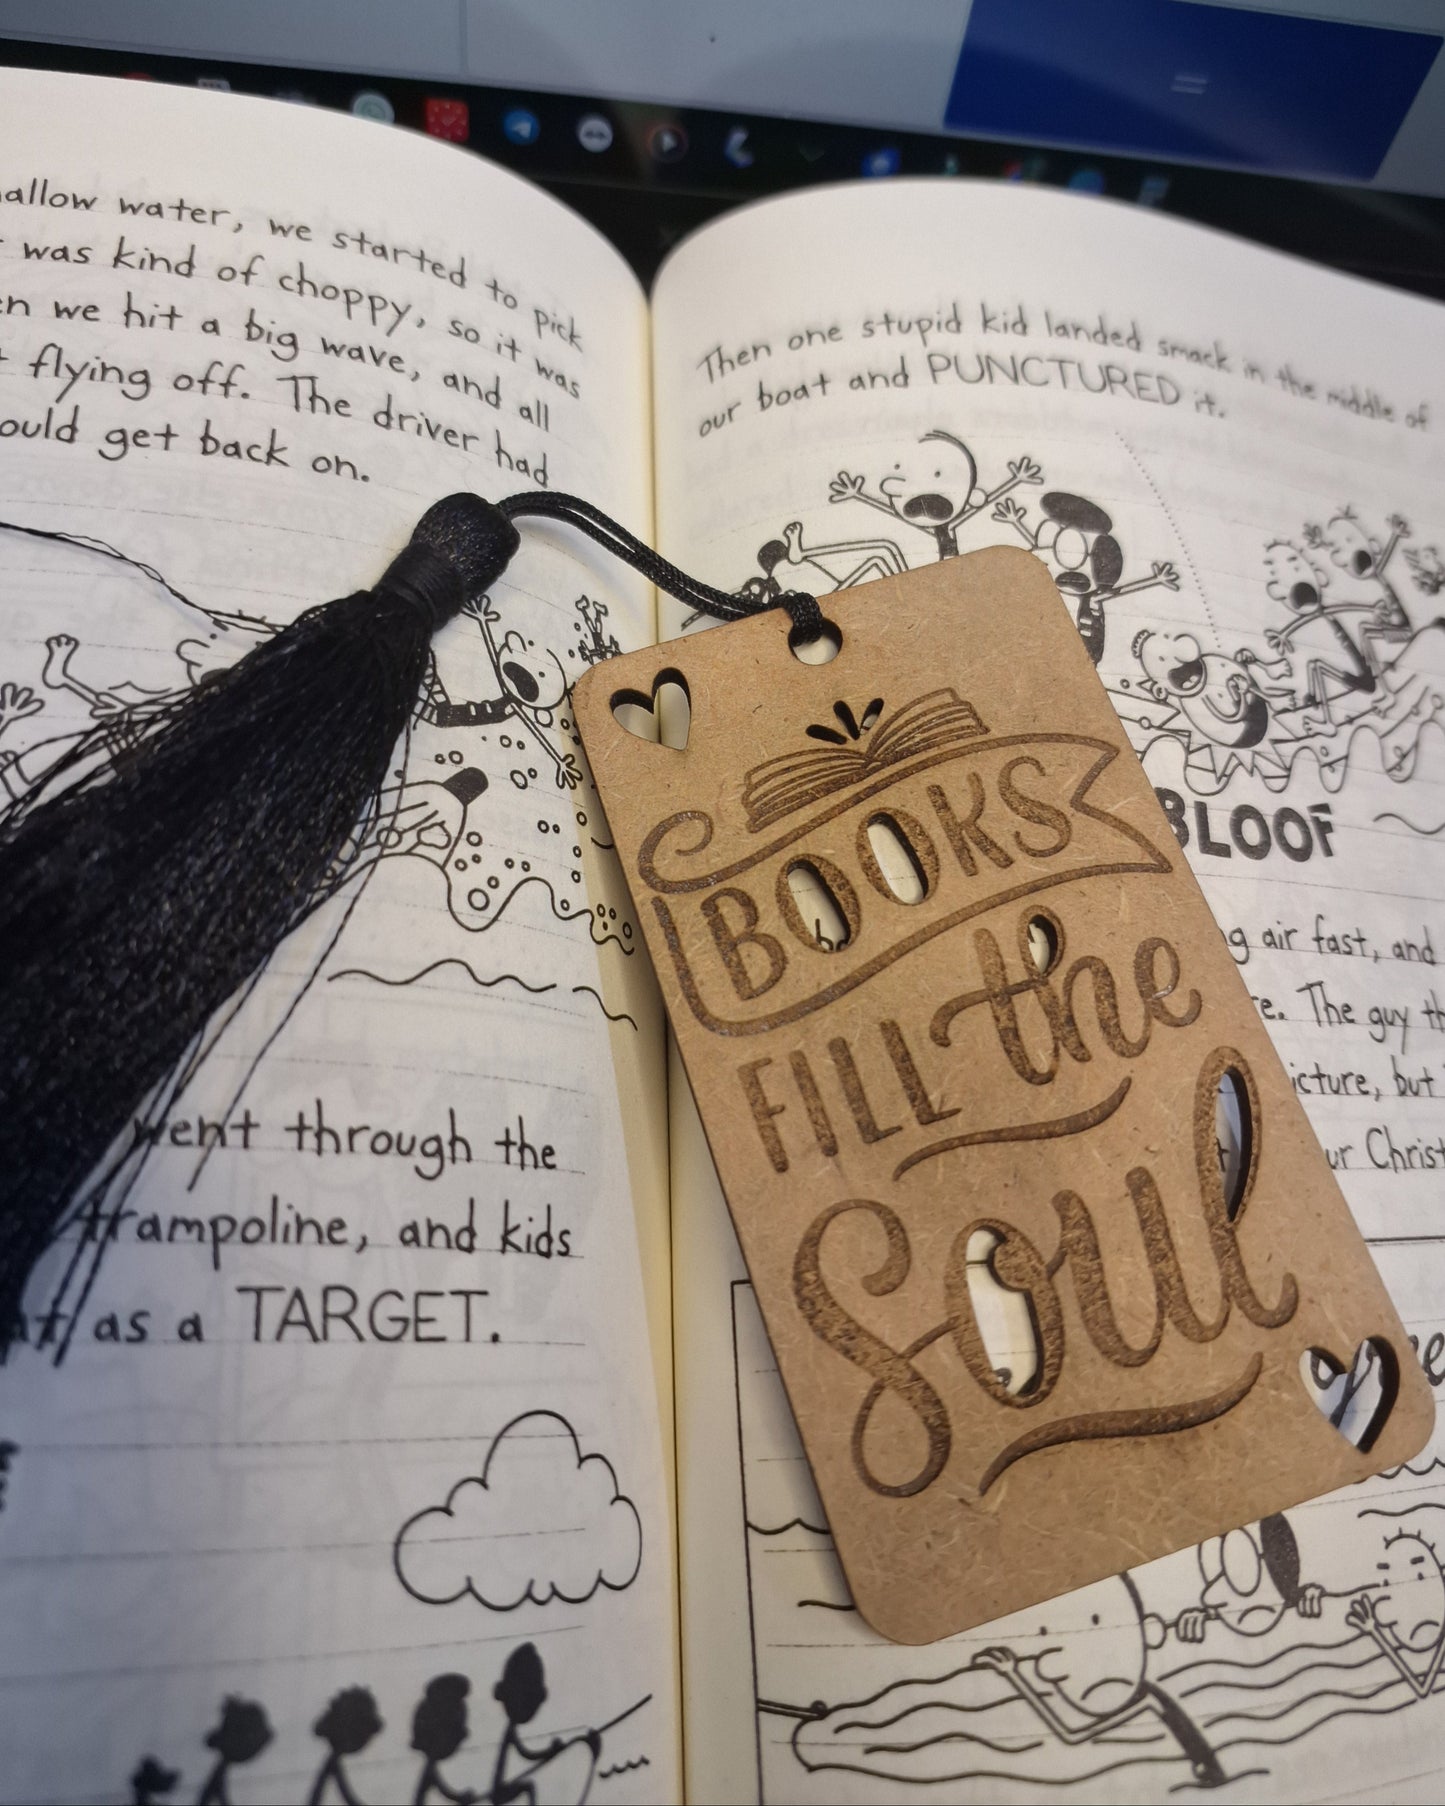 allow water, we started to pick
was kind of choppy, so it was
en we hit a big wave, and all
flying off. The driver had
ould get back on.
went through the
trampoline, and kids
as a TARGET.
Then one stupid kid landed smack in the middle of
our boat and PUNCTURED it.
BLOOF
g air fast, and
e. The guy th
icture, but
ur Christ
BOOKS
FILL the
Soul